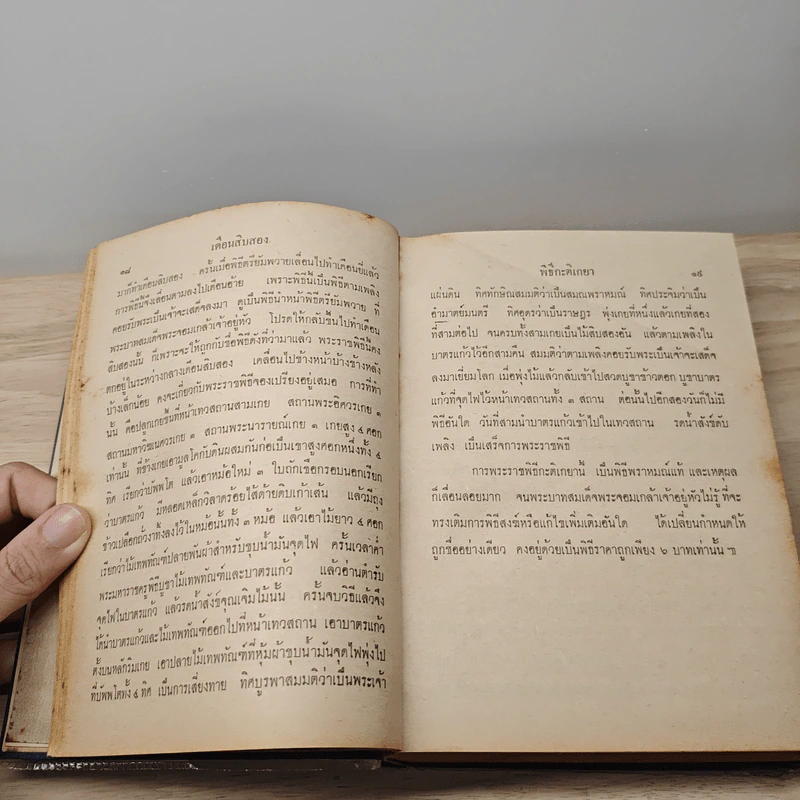 ๑๘
เดือนสิบสอง
มาก็ทำเดือนสิบสอง ครั้นเมื่อพิธีตรียัมพวายเลื่อนไปทำเดือนยี่แล้ว
การพิธีนี้จึงเลื่อนตามลงไปเดือนอ้าย เพราะพิธีนี้เป็นพิธีตามเพลิง
คอยรับพระเป็นเจ้าจะเสด็จลงมา คือเป็นพิธีนำหน้าพิธีตรียัมพวาย ที่
พระบาทสมเด็จพระจอมเกล้าเจ้าอยู่หัว โปรดให้กลับขึ้นไปทำเดือน
สิบสองนั้น ก็เพราะจะให้ถูกกับชื่อพิธีดังที่ว่ามาแล้ว พระราชพิธีนี้คง
ตกอยู่ในระหว่างกลางเดือนสิบสอง เคลื่อนไปข้างหน้าบ้างข้างหลัง
บ้างเล็กน้อย คงจะเกี่ยวกับพระราชพิธีจองเปรียงอยู่เสมอ การที่ทำ
นั้น คือปลูกเกยขึ้นที่หน้าเทวสถานสามเกย สถานพระอิศวรเกย ๑
สถานมหาวิฆเนศวรเกย ๑ สถานพระนารายณ์เกย ๑ เกยสูง ๔ ศอก
เท่านั้น ที่ข้างเกยเอามูลโคกับดินผสมกันก่อเป็นเขาสูงศอกหนึ่งทั้ง ๔
ทิศ เรียกว่าบัพพโต แล้วเอาหม้อใหม่ ๓ ใบถักเชือกรอบนอกเรียก
ว่าบาตรแก้ว มีหลอดเหล็กวิลาตร้อยไส้ด้ายดิบเก้าเส้น แล้วมีถุง
ข้าวเปลือกถั่วงาทิ้งลงไว้ในหม้อนั้นทั้ง ๓ หม้อ แล้วเอาไม้ยาว ๔ ศอก
เรียกว่าไม้เทพทัณฑ์ปลายพันผ้าสำหรับชุบน้ำมันจุดไฟ ครั้นเวลาค่ำ
พระมหาราชครูพิธีบูชาไม้เทพทัณฑ์และบาตรแก้ว แล้วอ่านตำรับ
จุดไฟในบาตรแก้ว แล้วรดน้ำสังข์จุณเจิมไม้นั้น ครั้นจบวิธีแล้วจึง
ได้นำบาตรแก้วและไม้เทพทัณฑ์ออกไปที่หน้าเทวสถาน เอาบาตรแก้ว
ตั้งบนหลักริมเกย เอาปลายไม้เทพทัณฑ์ที่หุ้มผ้าชุบน้ำมันจุดไฟพุ่งไป
ที่บัพพโตทั้ง ๔ ทิศ เป็นการเสี่ยงทาย ทิศบูรพาสมมติว่าเป็นพระเจ้า
พิธีกะติเกยา
๑๙
แผ่นดิน ทิศทักษิณสมมติว่าเป็นสมณพราหมณ์ ทิศประจิมว่าเป็น
อำมาตย์มนตรี ทิศอุดรว่าเป็นราษฎร พุ่งเกยที่หนึ่งแล้วเกยที่สอง
ที่สามต่อไป จนครบทั้งสามเกยเป็นไม้สิบสองอัน แล้วตามเพลิงใน
บาตรแก้วไว้อีกสามคืน สมมติว่าตามเพลิงคอยรับพระเป็นเจ้าจะเสด็จ
ลงมาเยี่ยมโลก เมื่อพุ่งไม้แล้วกลับเข้าไปสวดบูชาข้าวตอก บูชาบาตร
แก้วที่จุดไฟไว้หน้าเทวสถานทั้ง ๓ สถาน ต่อนั้นไปอีกสองวันก็ไม่มี
พิธีอันใด วันที่สามนำบาตรแก้วเข้าไปในเทวสถาน รดน้ำสังข์ดับ
เพลิง เป็นเสร็จการพระราชพิธี
การพระราชพิธีกะติเกยานี้ เป็นพิธีพราหมณ์แท้ และเหตุผล
ก็เลื่อนลอยมาก จนพระบาทสมเด็จพระจอมเกล้าเจ้าอยู่หัวไม่รู้ที่จะ
ทรงเติมการพิธีสงฆ์หรือแก้ไขเพิ่มเติมอันใด ได้เปลี่ยนกำหนดให้
ถูกชื่ออย่างเดียว คงอยู่ด้วยเป็นพิธีราคาถูกเพียง ๖ บาทเท่านั้น ๚